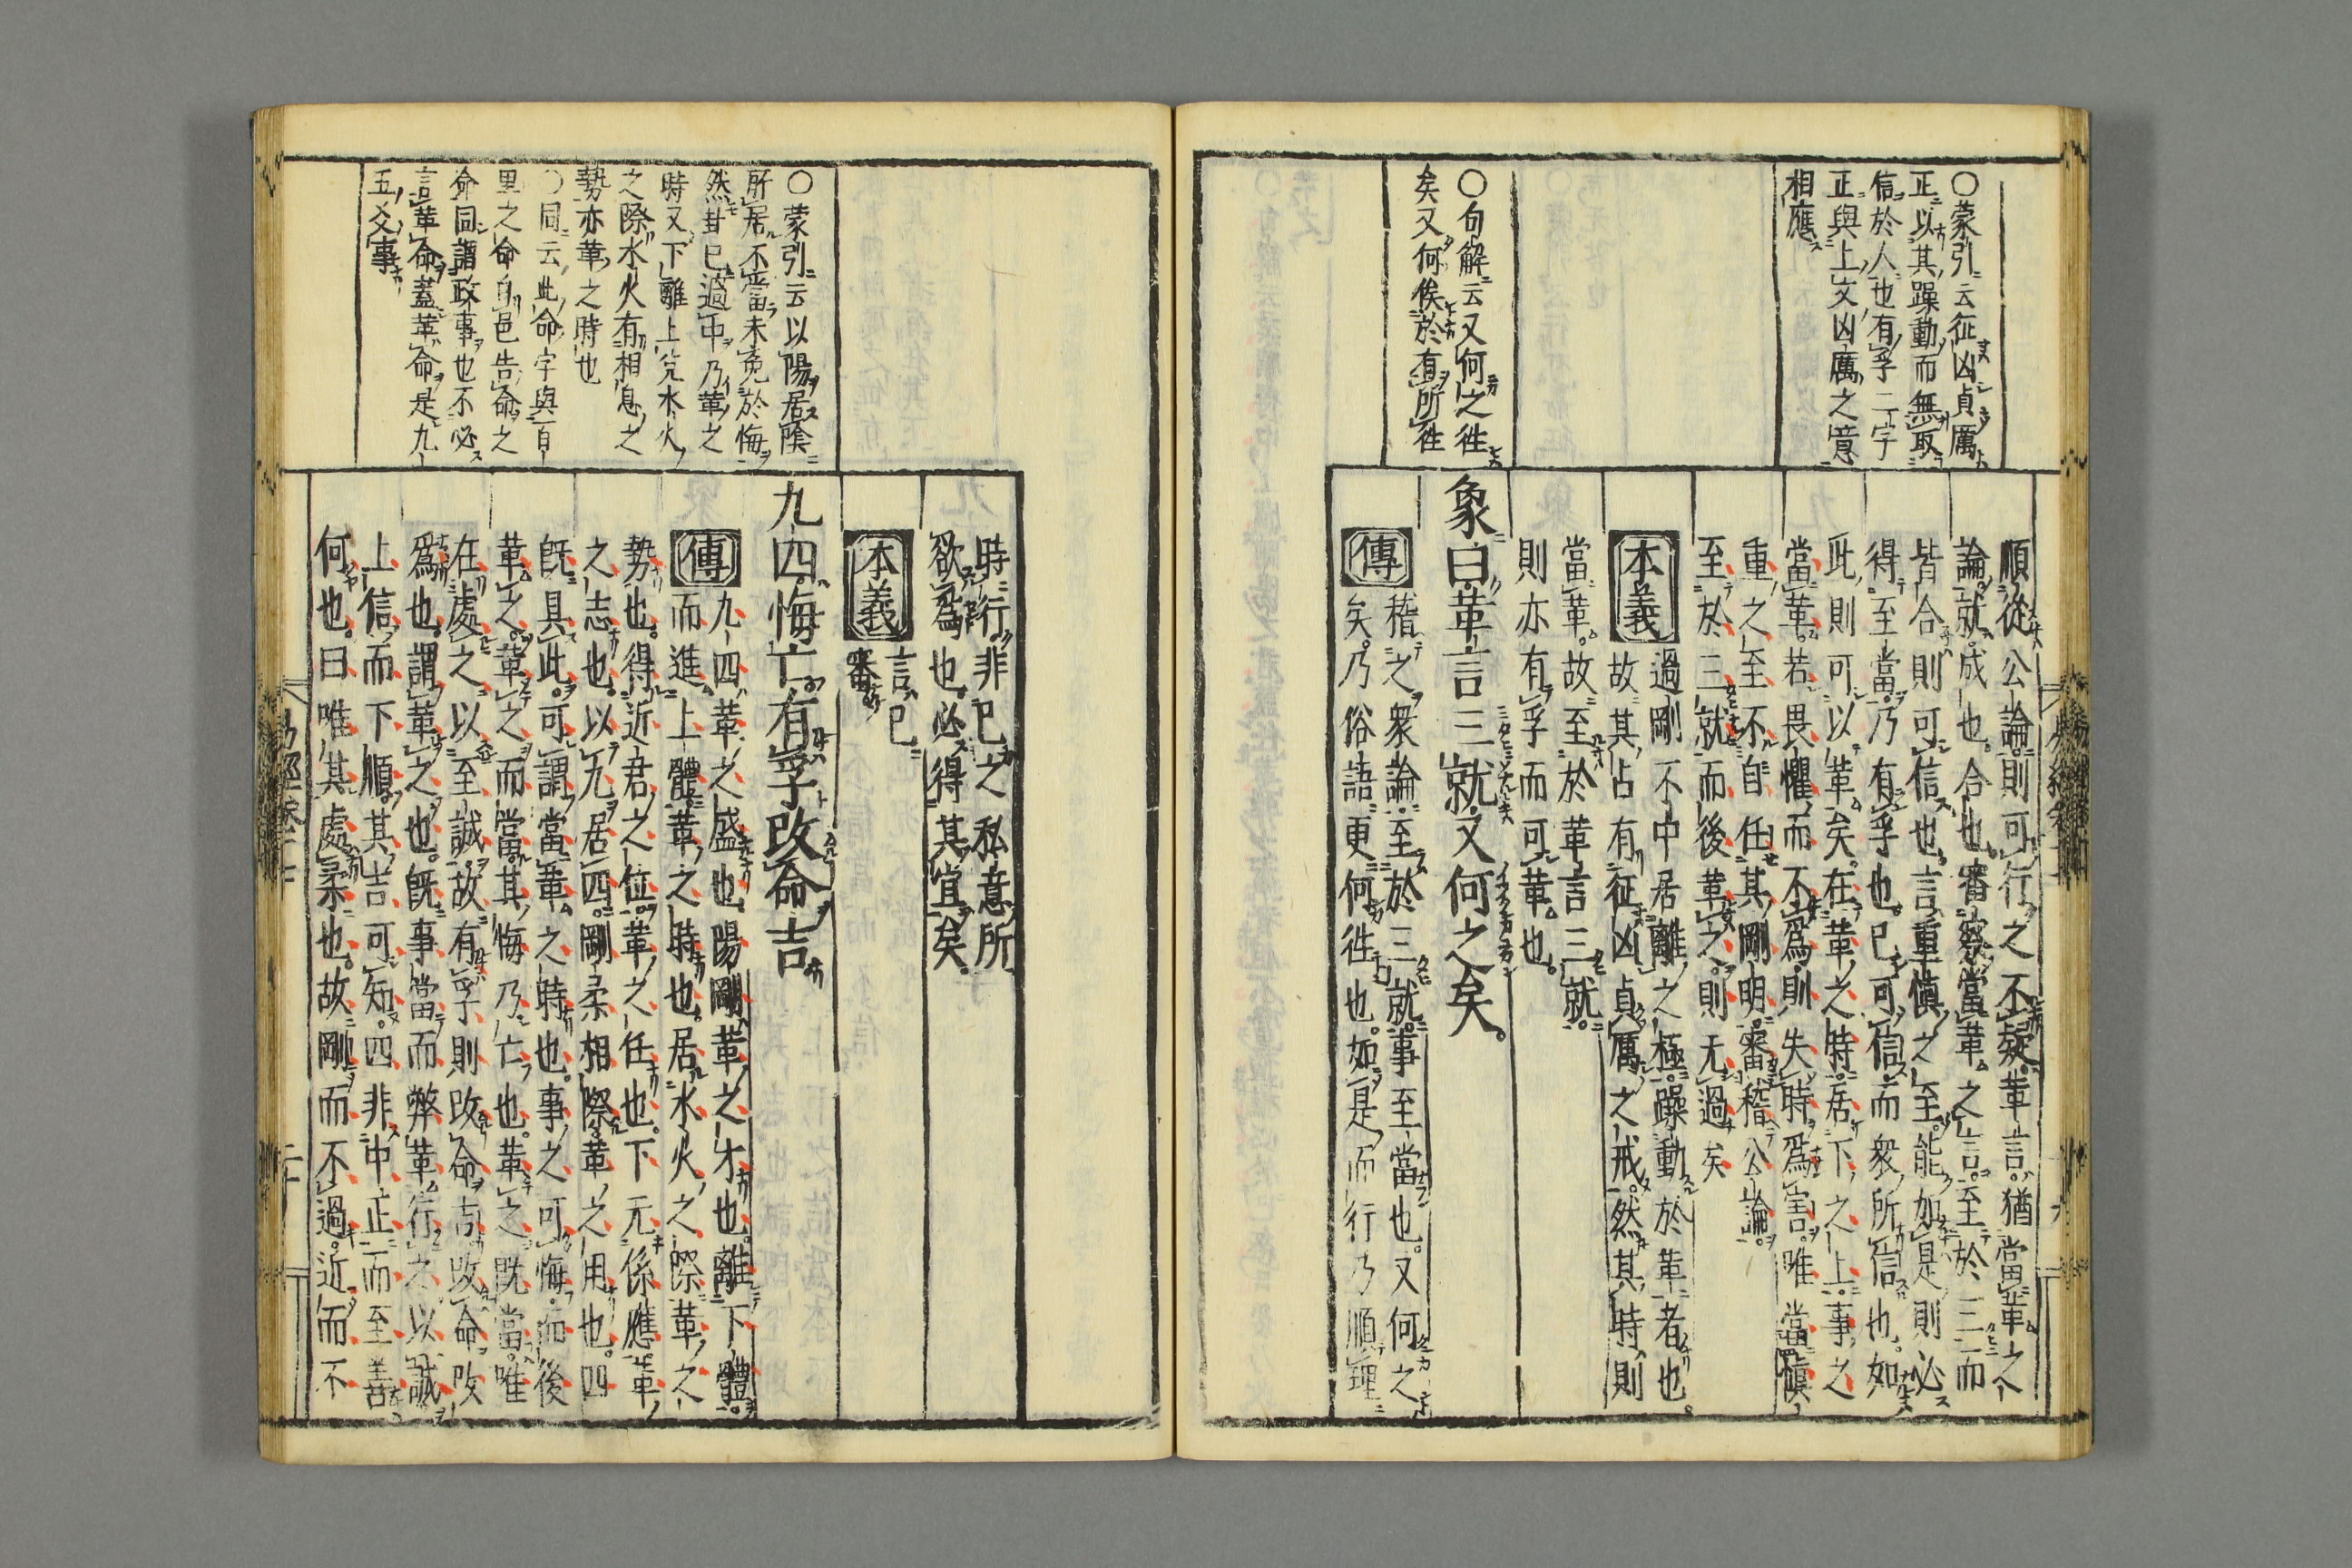 順從公論則可行之不疑革言猶當革之
論就成也合也審察當革之言至於三而
皆合則可信也言重慎之至能如是則必
得至當乃有孚也已可信而衆所信也如
此則可以革矣在革之時居下之上事之
當革若畏懼而不爲則失時爲害唯當慎
重之至不自任其剛明審稽公論
至於三就而後革之則无過矣
本義
過剛不中居離之極躁動於革者也
故其占有征凶貞厲之戒然其時則
當革故至於革言三就
則亦有孚而可革也
象曰革言三就又何之矣
傳
稽之衆論至於三就事至當也又何之
矣乃俗語更何徃也如是而行乃順理
〇蒙引云征凶貞厲
正以其躁動而無取
信於人也有孚二字
正與上文凶厲之意
相應
〇句解云又何之徃
矣又何俟於有所徃
時行非已之私意所
欲爲也必得其宜矣
本義
言已
審
九四悔亡有孚改命吉
傳
九四革之盛也陽剛革之才也離下體
而進上體革之時也居水火之際革之
勢也得近君之位革之任也下无係應革
之志也以九居四剛柔相際革之用也四
旣具此可謂當革之時也事之可悔而後
革之革之而當其悔乃亡也革之旣當唯
在處之以至誠故有孚則改命吉改命改
爲也謂革之也旣事當而弊革行之以誠
上信而下順其吉可知四非中正而至善
何也曰唯其處柔也故剛而不過近而不
〇蒙引云以陽居陰
所居不當未免於悔
然卦已過中乃革之
時又下離上兌水火
之際水火有相息之
勢亦革之時也
〇同云此命字與自
邑告命之
命同謂政事也不必
言革命蓋革命是九
五爻事
易經卷十七
二十